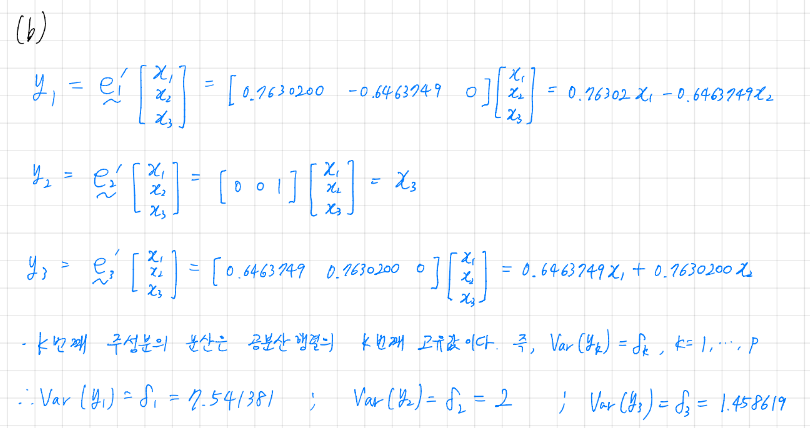 (b)
y₁ = e₁′ [x₁ x₂ x₃] = [0.7630200 -0.6463749 0] [x₁ x₂ x₃] = 0.76302 x₁ - 0.6463749 x₂
y₂ = e₂′ [x₁ x₂ x₃] = [0 0 1] [x₁ x₂ x₃] = x₃
y₃ = e₃′ [x₁ x₂ x₃] = [0.6463749 0.7630200 0] [x₁ x₂ x₃] = 0.6463749 x₁ + 0.7630200 x₂
· k번째 주성분의 분산은 공분산 행렬의 k번째 고유값이다. 즉, Var(yₖ) = δₖ, k=1, ⋯, p
∴ Var(y₁) = δ₁ = 7.541381 ; Var(y₂) = δ₂ = 2 ; Var(y₃) = δ₃ = 1.458619